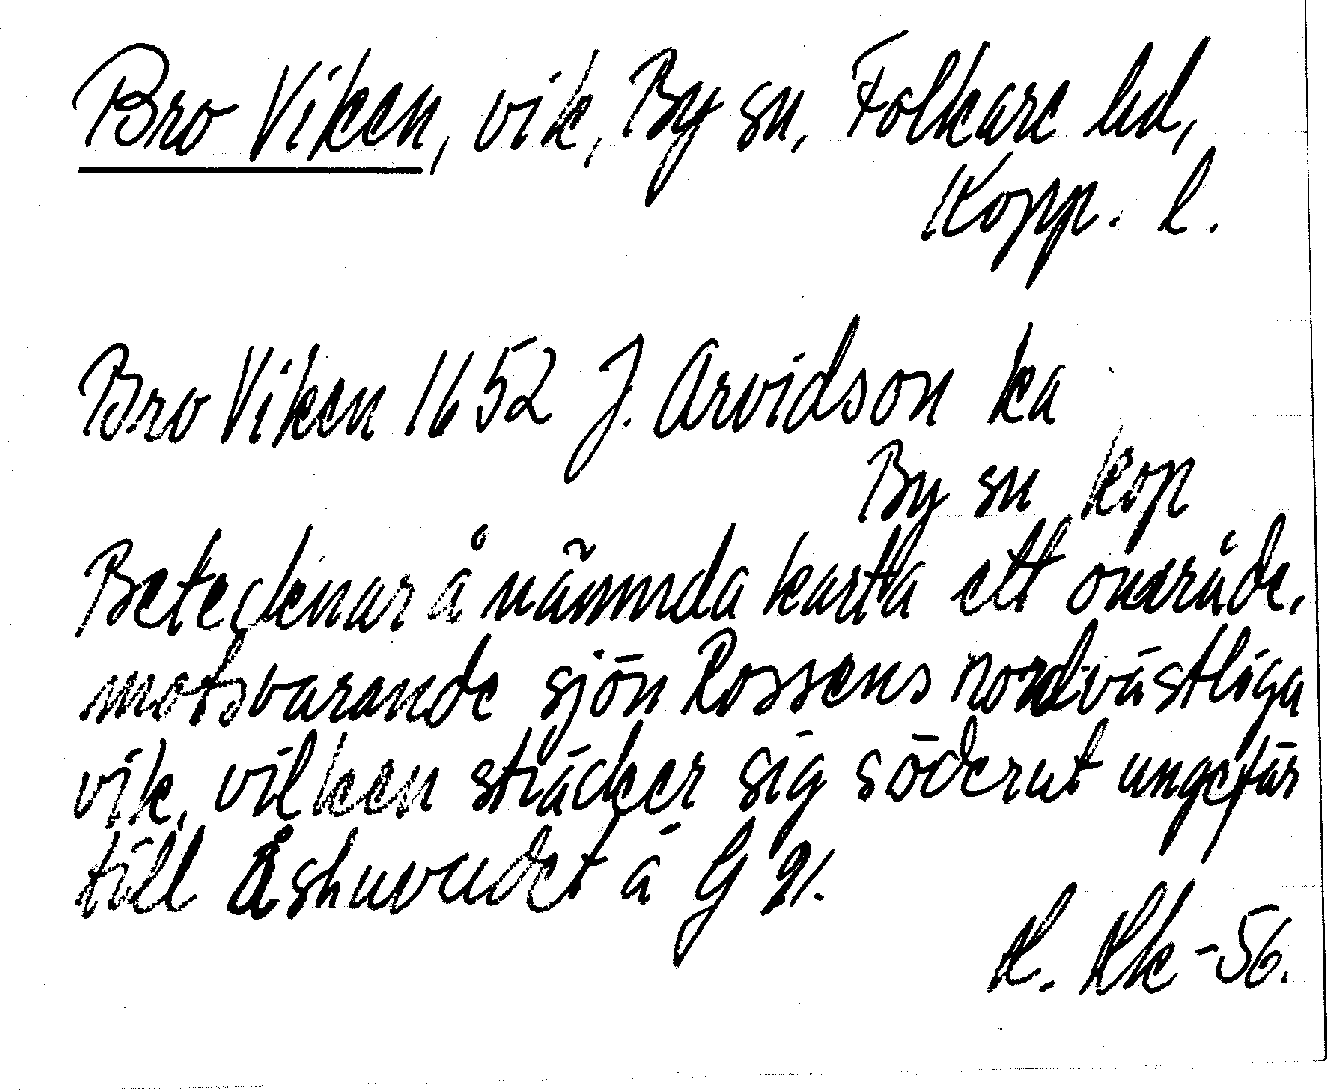 Bro Viken, vik, By sn, Folkare hd,
Kopp. l.
Bro Viken 1652 J. Arvidson ka
By sn kop
Betecknar å nämnda karta ett område,
motsvarande sjön Rossens nordvästliga
vik, vilken sträcker sig söderut ungefär
till Åshuvudet å G 91.
-56.